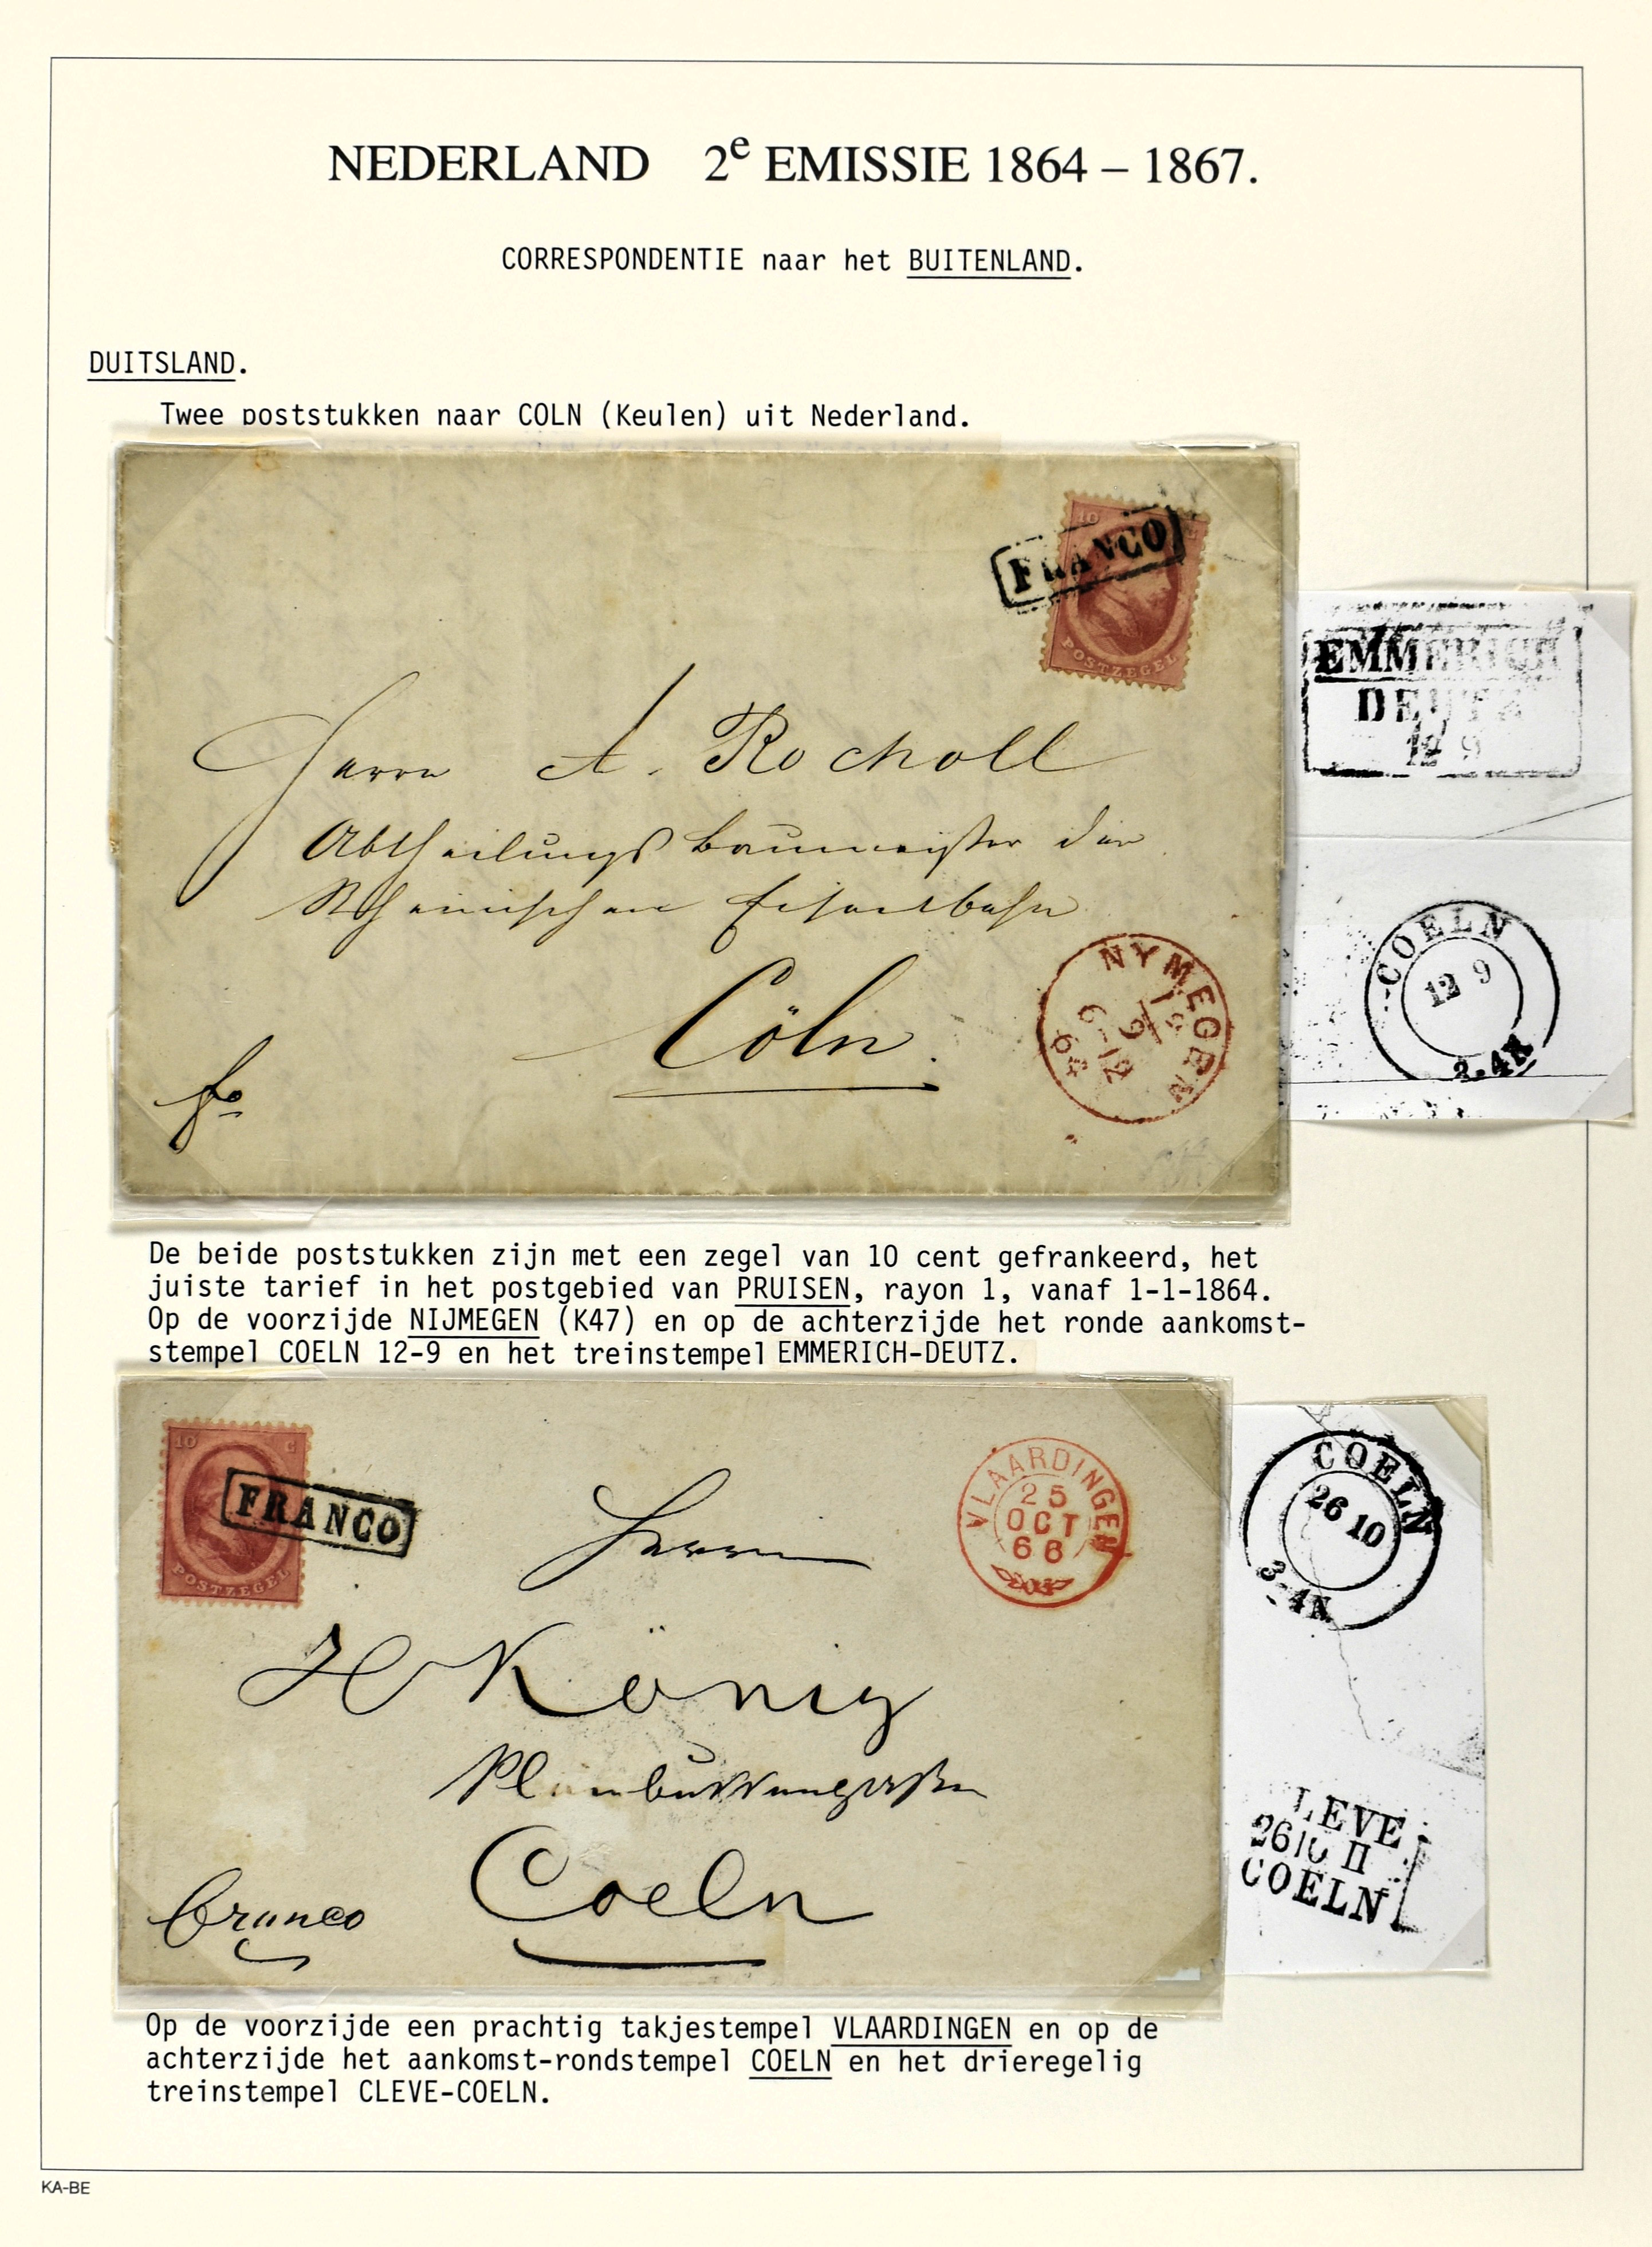 NEDERLAND 2e EMISSIE 1864 – 1867.
CORRESPONDENTIE naar het BUITENLAND.
DUITSLAND.
Twee poststukken naar COLN (Keulen) uit Nederland.
10 C
FRANCO
POSTZEGEL
Herrn A. Rocholl
Abtheilungs Baumeister der
Rheinischen Eisenbahn
Cöln.
fo
NYMEGEN
12/9
6-12
64
EMMERICH
DEUTZ
12 9
COELN
12 9
3-4N
De beide poststukken zijn met een zegel van 10 cent gefrankeerd, het
juiste tarief in het postgebied van PRUISEN, rayon 1, vanaf 1-1-1864.
Op de voorzijde NIJMEGEN (K47) en op de achterzijde het ronde aankomst-
stempel COELN 12-9 en het treinstempel EMMERICH-DEUTZ.
10 C
FRANCO
POSTZEGEL
VLAARDINGEN
25
OCT
66
Herrn
H König
Coeln
Franco
COELN
26 10
3-4N
LEVE
26 10 II
COELN
Op de voorzijde een prachtig takjestempel VLAARDINGEN en op de
achterzijde het aankomst-rondstempel COELN en het drieregelig
treinstempel CLEVE-COELN.
KA-BE